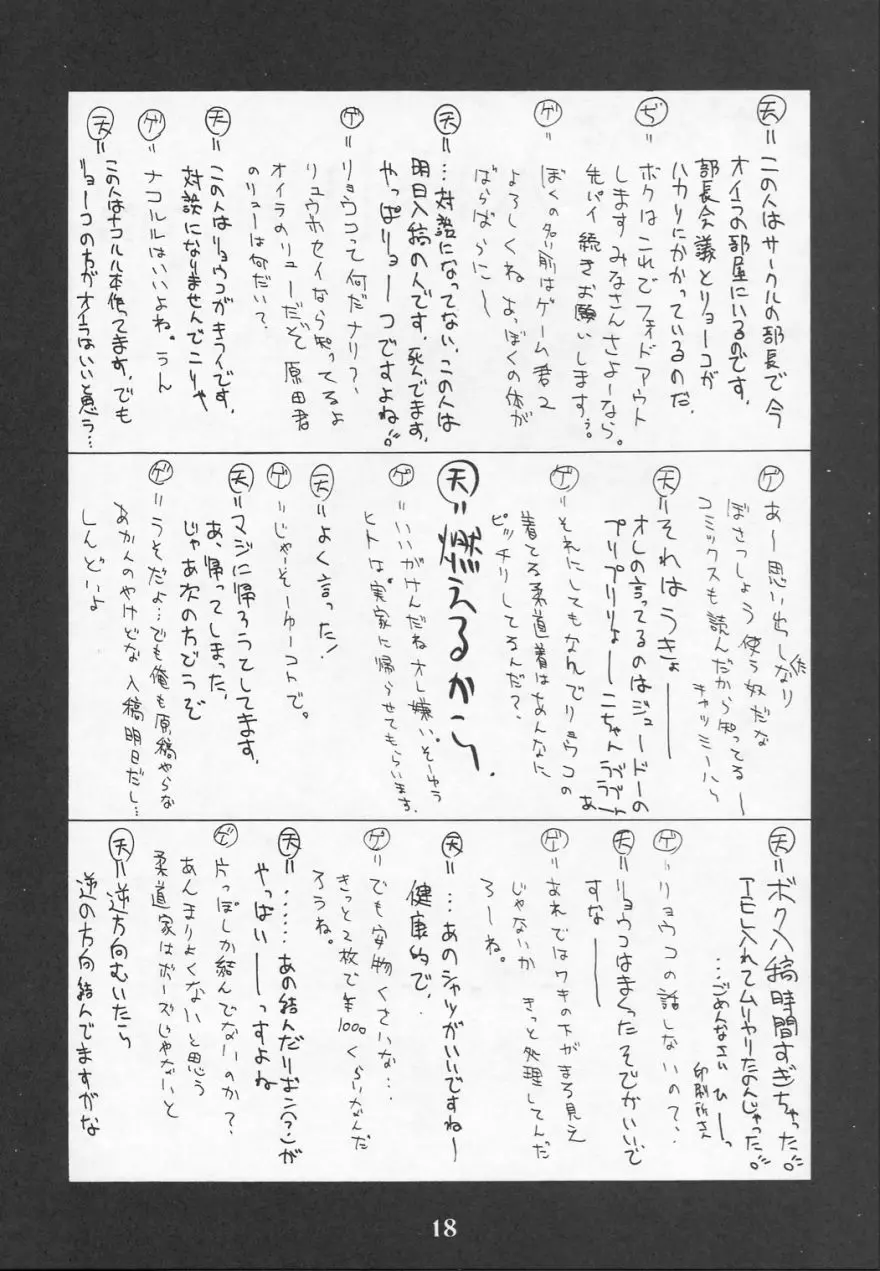 天=この人はサークルの部長で今
オイラの部屋にいるのです。
部長会議とリョーコが
ハカリにかかっているのだ。
ぢ=ボクはこれでフェイドアウト
します みなさんさよーなら。
先パイ続きお願いしますぅ。
ゲ=ぼくの名前はゲーム君2
よろしくね あっぼくの体が
ばらばらに〜
天=…対談になってない、この人は
明日入稿の人です。死んでます。
やっぱリョーコですよね
ゲ=リョウコって何だナリ?、
リュウホセイなら知ってるよ
オイラのリューだぞ 原田君
のリューは何だい?
天=この人はリョウコがキライです。
対談になりませんでこりゃ
ゲ=ナコルルはいいよね。うん
天=この人はナコルル本作ってます。でも
リョーコの方がオイラはいいと思う…
ゲ=あー思い出しなり
くた
ぼさつしょう使う奴だな
コミックスも読んだから知ってるー
キャッミーハら
天=それはうきょ――――
オレの言ってるのはジュードーの
プリプリりょーこちゃんラブラブーあ
ゲ=それにしてもなんでリョウコの
着てる柔道着はあんなに
ピッチリしてるんだ?、
天=燃えるから、
ゲ=いいがげんだねオレ嫌い。そーゆう
ヒトは。実家に帰らせてもらいます、
天=よく言った!
ゲ=じゃーそーゆーコトで。
天=マジに帰ろうてしてます。
あ、帰ってしまった、
じゃあ次の方どうぞ
ゲ=うそだよ…でも俺も原稿やらな
あかんのやけどな 入稿明日だし…
しんどいよ
天=ボク入稿時間すぎちゃった
アモレ入れてムリヤリたのんじゃった
…ごめんなさい ひーっ
印刷所さん
ゲ=リョウコの話しないの?、
天=リョウコはまくったそでがいいで
すな――
ゲ=あれではワキの下がまる見え
じゃないか きっと処理してんだ
ろーね。
天=…あのシャツがいいですね〜
健康的で、
ゲ=でも安物くさいな…
きっと2枚で¥1000くらいなんだ
ろうね。
天=……あの結んだリボン(?)が
やっぱい――っすよね
ゲ=片っぽしか結んでないのか?、
あんまりよくないと思う
柔道家はボーズじゃないと
天=逆方向むいたら
逆の方向結んでますがな
18